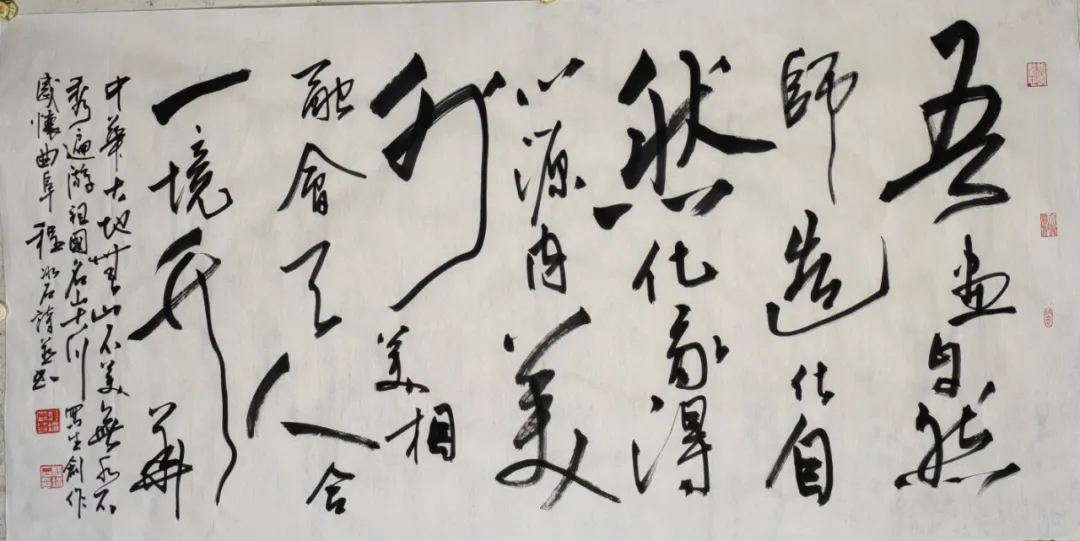 吾畫自然
師造化自
然化象得
心源内美
外美相
融會天人合
一境升華
中華大地無山不美無水不
秀遍游祖國名山大川寫生創作
感懷曲阜程冰石詩並書